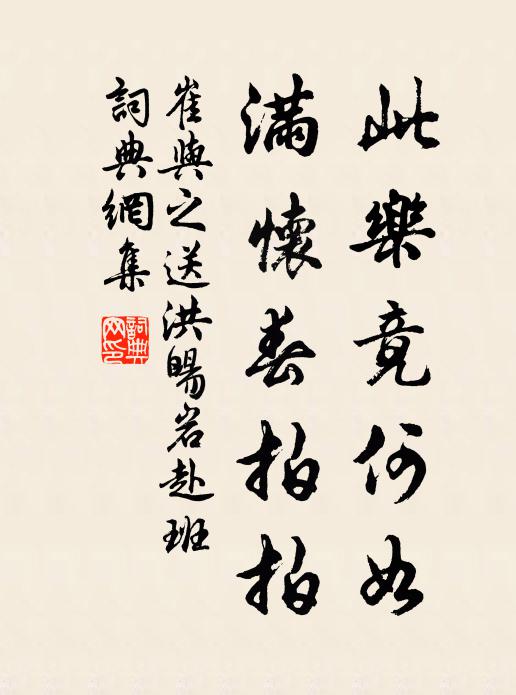 此樂竟何如
滿懷春拍拍
崔與之送洪暘岩赴班
詞典網集
詞典網印